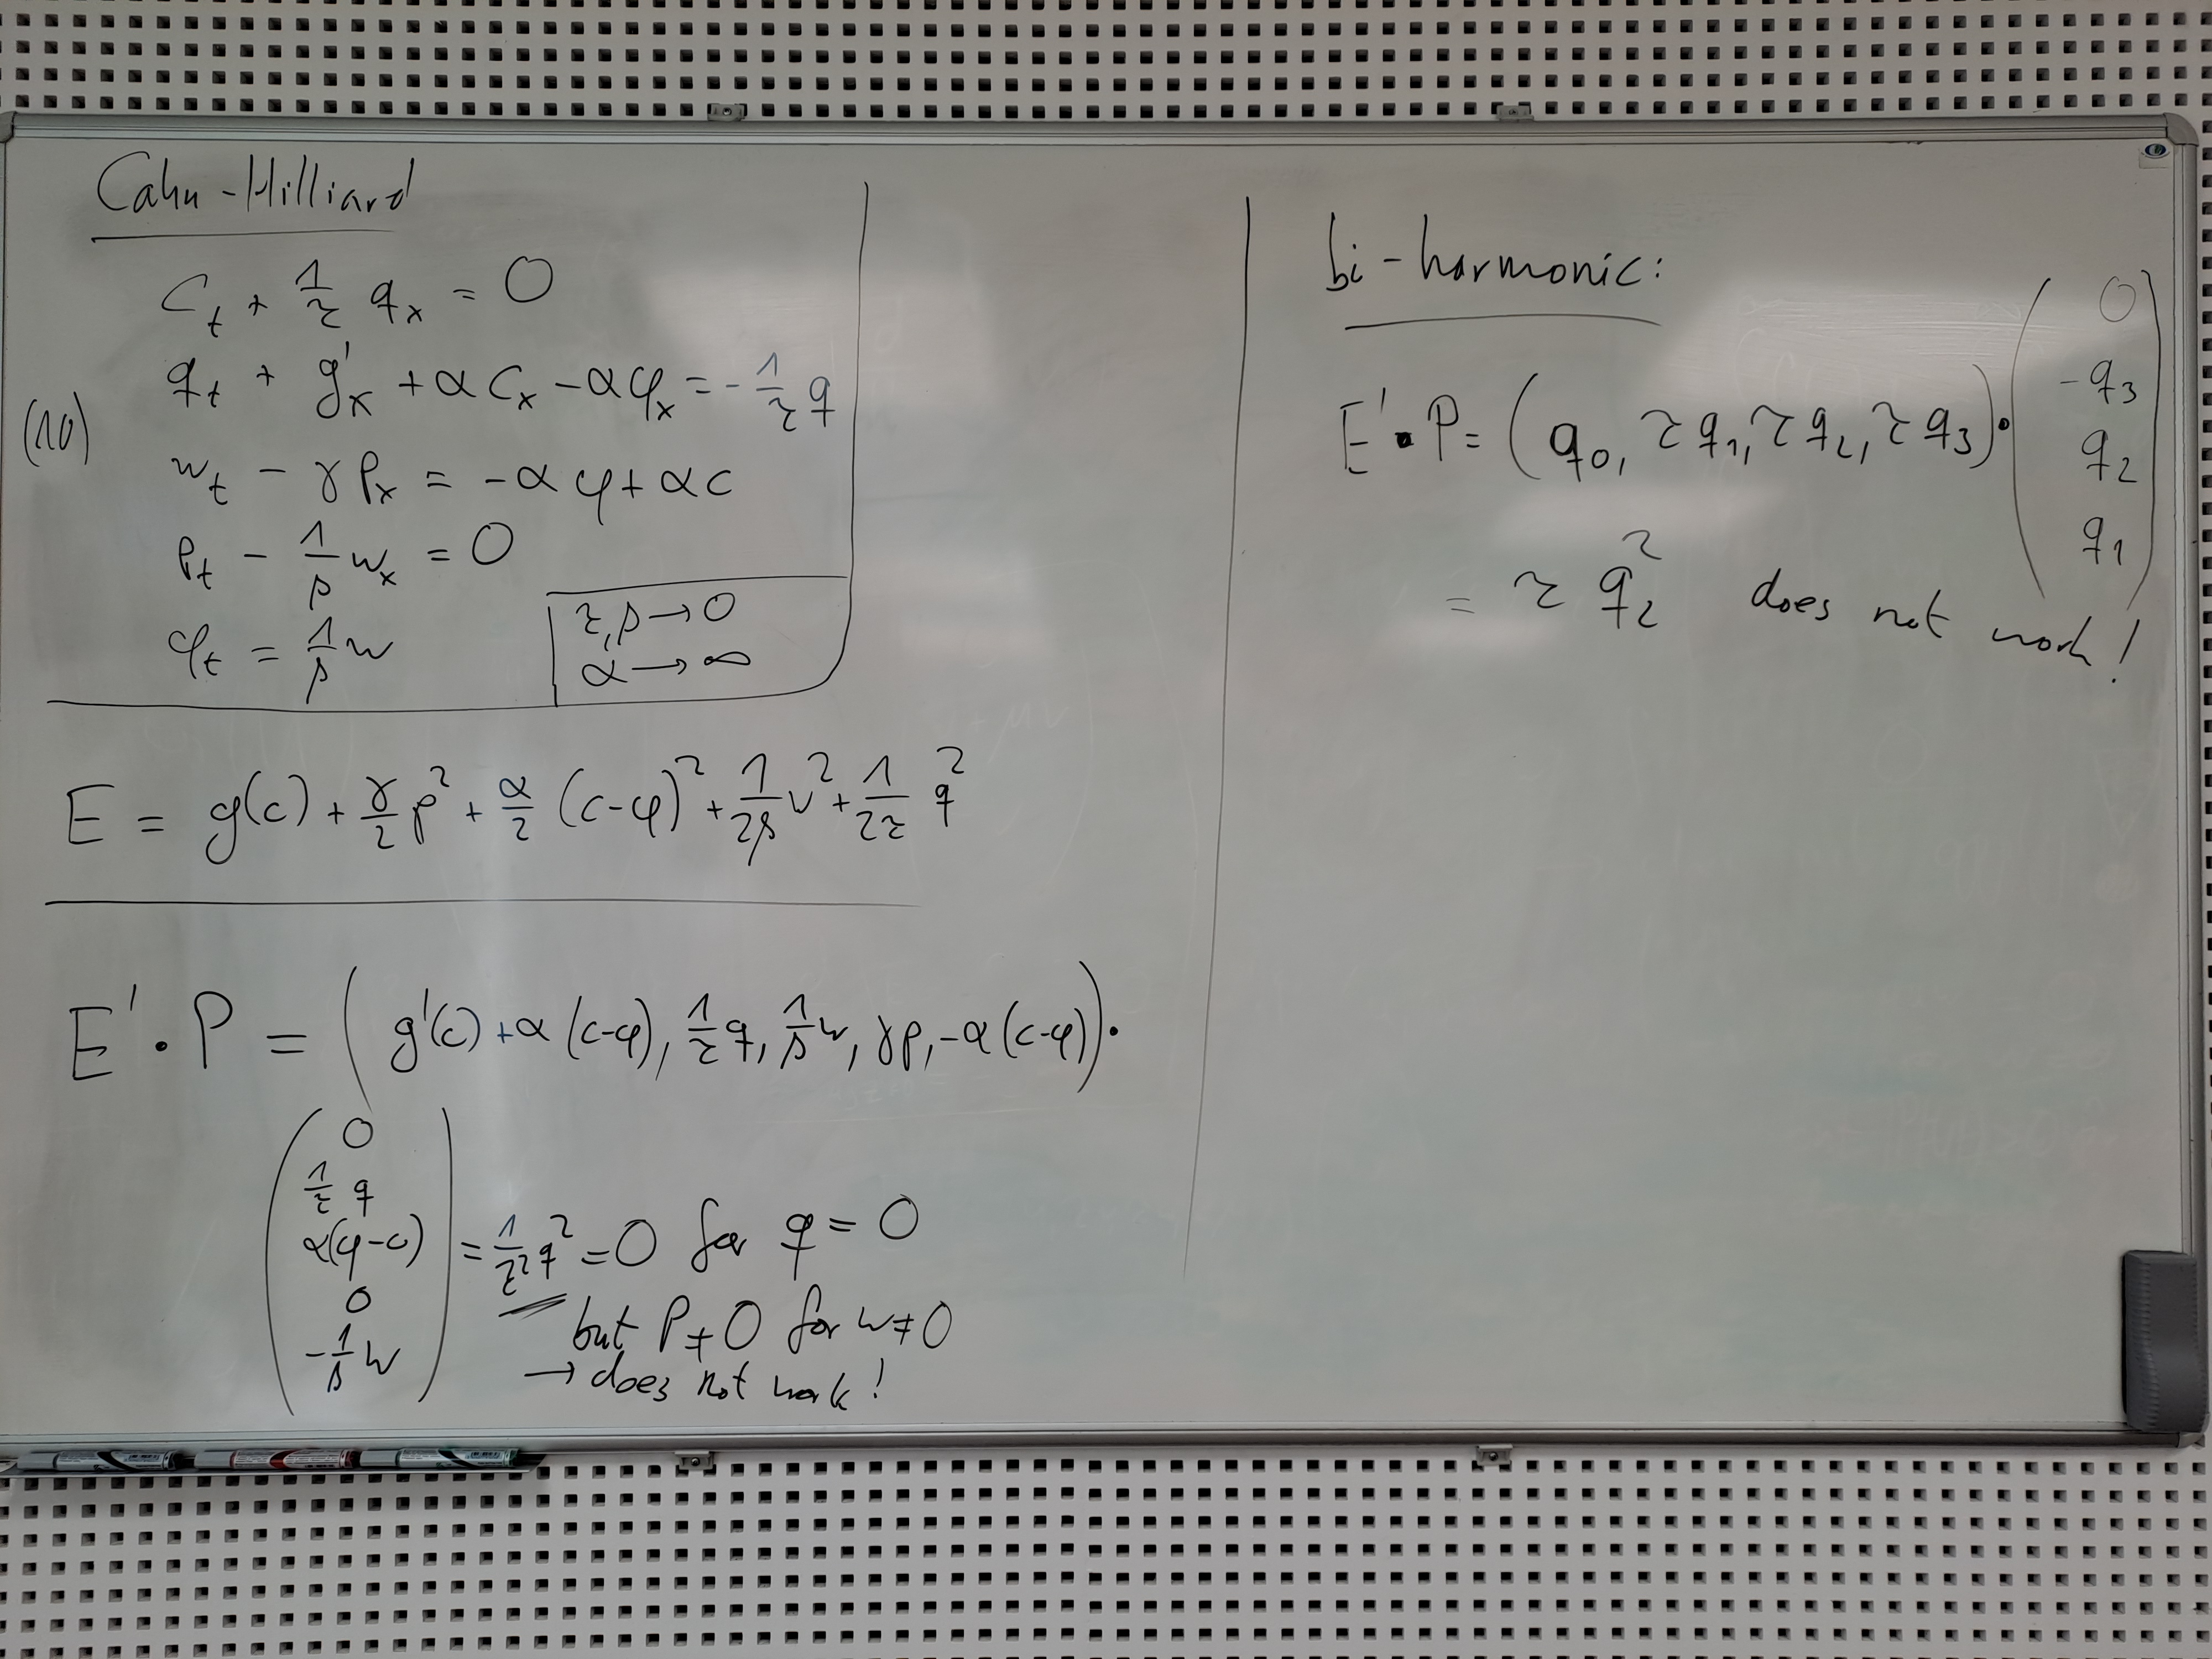 Cahn-Hilliard
(10)
C_t + 1/τ q_x = 0
q_t + g'_x + α c_x - α φ_x = - 1/τ q
w_t - γ p_x = -α φ + α c
p_t - 1/β w_x = 0
φ_t = 1/β w
τ, β → 0
α → ∞
E = g(c) + γ/2 p² + α/2 (c-φ)² + 1/2β w² + 1/2τ q²
E' · P = ( g'(c) + α (c-φ), 1/τ q, 1/β w, γp, -α (c-φ) ) ·
( 0
1/τ q
α(φ-c)
0
- 1/β w ) = 1/τ² q² = 0 for q = 0
but P ≠ 0 for w ≠ 0
→ does not work!
bi-harmonic:
E' · P = ( q_0, τ q_1, τ q_2, τ q_3 ) ·
( 0
-q_3
q_2
q_1 )
= τ q_2² does not work!